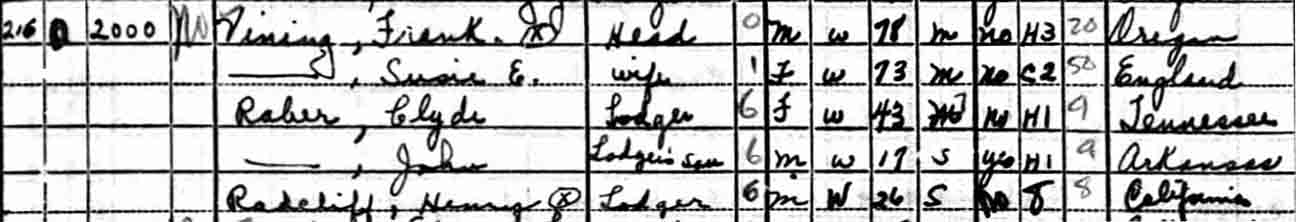 216 O 2000 No Vining, Frank. Ⓧ Head 0 M W 78 M No H3 20 Oregon
——, Susie E. Wife 1 F W 73 M No C2 50 England
Raber, Clyde Lodger 6 F W 43 No H1 9 Tennessee
——, John Lodger's Son 6 M W 17 S Yes H1 9 Arkansas
Radcliff, Henry Ⓧ Lodger 6 M W 26 S No 8 8 California